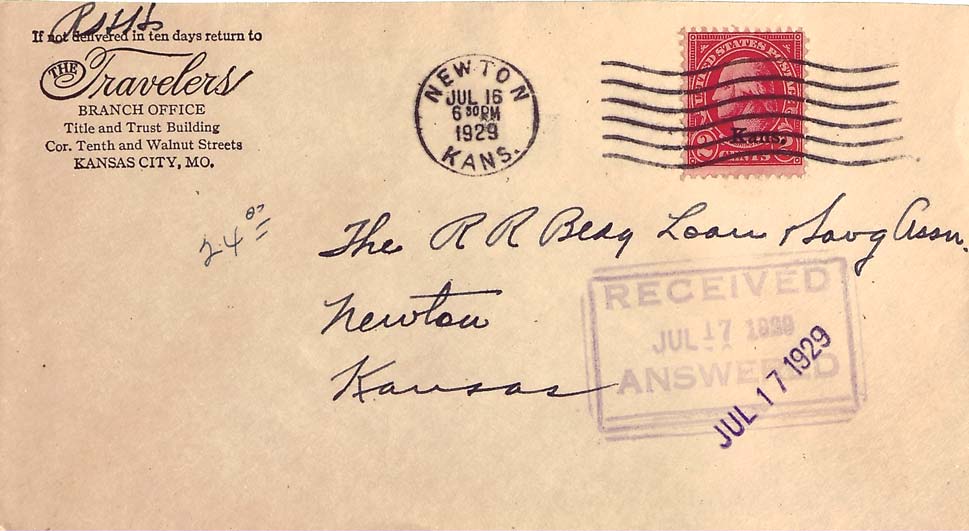 If not delivered in ten days return to
THE Travelers
BRANCH OFFICE
Title and Trust Building
Cor. Tenth and Walnut Streets
KANSAS CITY, MO.
NEWTON
JUL 16
6 30 PM
1929
KANS.
UNITED STATES POSTAGE
Kans.
2 CENTS 2
24
The R R Bldg Loan & Savg Assn.
Newton
Kansas
RECEIVED
JUL 17 1929
ANSWERED
JUL 17 1929